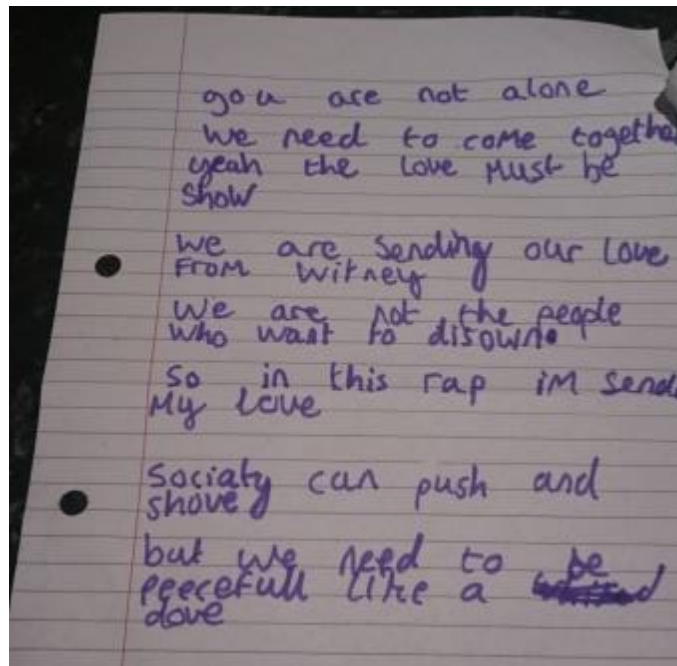 you are not alone
we need to come together
yeah the love must be
show
we are sending our love
From witney
we are not the people
who want to disown.
So in this rap im send
My love
Sociaty can push and
shove
but we need to be
peecefull like a
dove